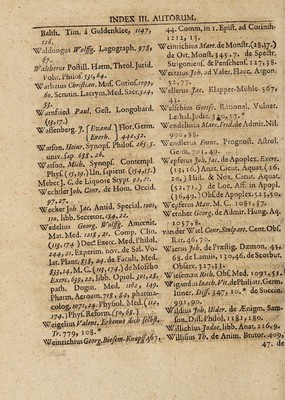 INDEX III. AUTORUM.
Balth. Tim. à Guldenklee, 1147,
126.
Waldungus Wolffg. Lagograph, 978,
67.
Waltherus Postill. Harm. Theol. Jurid.
Polit. Philof. 531, 64.
Warlitzius Christian. Muf. Curiof. 1099,
60. Scrutin. Lacrym. Med. Sacr. 544,
53.
Warnfried Paul. Gest. Longobard.
(15, 17.)
Wassenberg. J. Evand Flor. Germ.
Exerb. 442, 52.
Watson. Heinr. Synops. Philof. 263, 5.
univ. sap. 638, 26.
Watson. Mich. Synopf. Contempl.
Phyf. (15, 19.) Un. sapient. (154, 15.)
Meber. J. G. de Liquore Stypt 92, 21.
Wechtsler Job. Conr. de Hom. Occid.
97, 23.
Wecker Job. Jac. Antid. Special. 1001,
110. libb. Secretor. 154, 22.
Wedelius Georg. Wolffg. Amœnit.
Mat. Med. 1218, 21. Comp. Clin.
(19, 174.) Doc. Exerc. Med. Philol.
244, 21. Experim. nov. de Sal. Vo-
lat. Plant. 858, 24. de Facult. Med.
833, 14. M. G. (19, 174.) de Moscho
Exerc. 659, 22. libb. Opiol. 201, 28.
path. Dogm. Med. 1162, 149.
Pharm. Acroam. 718, 80. pharma-
colog. 1071, 24. Physiol. Med. (112,
174.) Phyf. Reform. (50, 68.)
Weigelius Valent. Erkenne dich selbst,
Tr. 779, 108. *
Weinrichius Georg. Biesem-Knopff 567,
44. Comm. in 1. Epist. ad Corinth.
1212, 15.
Weinrichius Mart. de Monstr. (28, 47.)
de Ort. Monstr. 365, 7. de Spectr.
Strigoniens. & Penschens. 127, 38.
Weitzius Joh. ad Valer. Flacc. Argon.
52, 77.
Wellerus Jac. Klapper-Mühle. 567,
41.
Welschius Gottfr. Rational. Vulner.
Leth. Judic. 320, 17. *
Wendelinus Marc. Frid. de Admir. Nil.
990, 88.
Wendlerus Franc. Prognost. Astrol.
Ge. 701, 49.
Wepferus Joh. Jac. de Apoplex. Exerc.
(15, 16.) Anat. Cicut. Aquat. (16,
20.) Hist. & Nox. Cicut. Aquat.
(52, 71.) de Loc. Aff. in Apopl.
(16, 19.) Obs. de Apoplex. 525, 50.
Wepferus Mar. M. C. 1081, 57.
Wernher Georg. de Admir. Hung. Aq.
4057, 8.
van der Wiel Corn. Stalpart. Cent. Obs.
Rar. 46, 70.
Wierus Joh. de Præstig. Dæmon. 45,
68. de Lamiis, 130, 46. de Scorbut.
Observ. 317, 31.
Wieseman Rich. Obs. Med. 1091, 51.
Wigandus Ioach. Vit. de Philiatr. Germ.
linner. Diss. 347, 10. * de Succin.
991, 90.
Waldius Joh. Ulder. de Ænigm. Sam-
son. Diss. Philol. 1181, 180.
Willichius Jodoc. libb. Anat. 216, 9.
Willisius Th. de Anim. Brutor. 409,
47. de